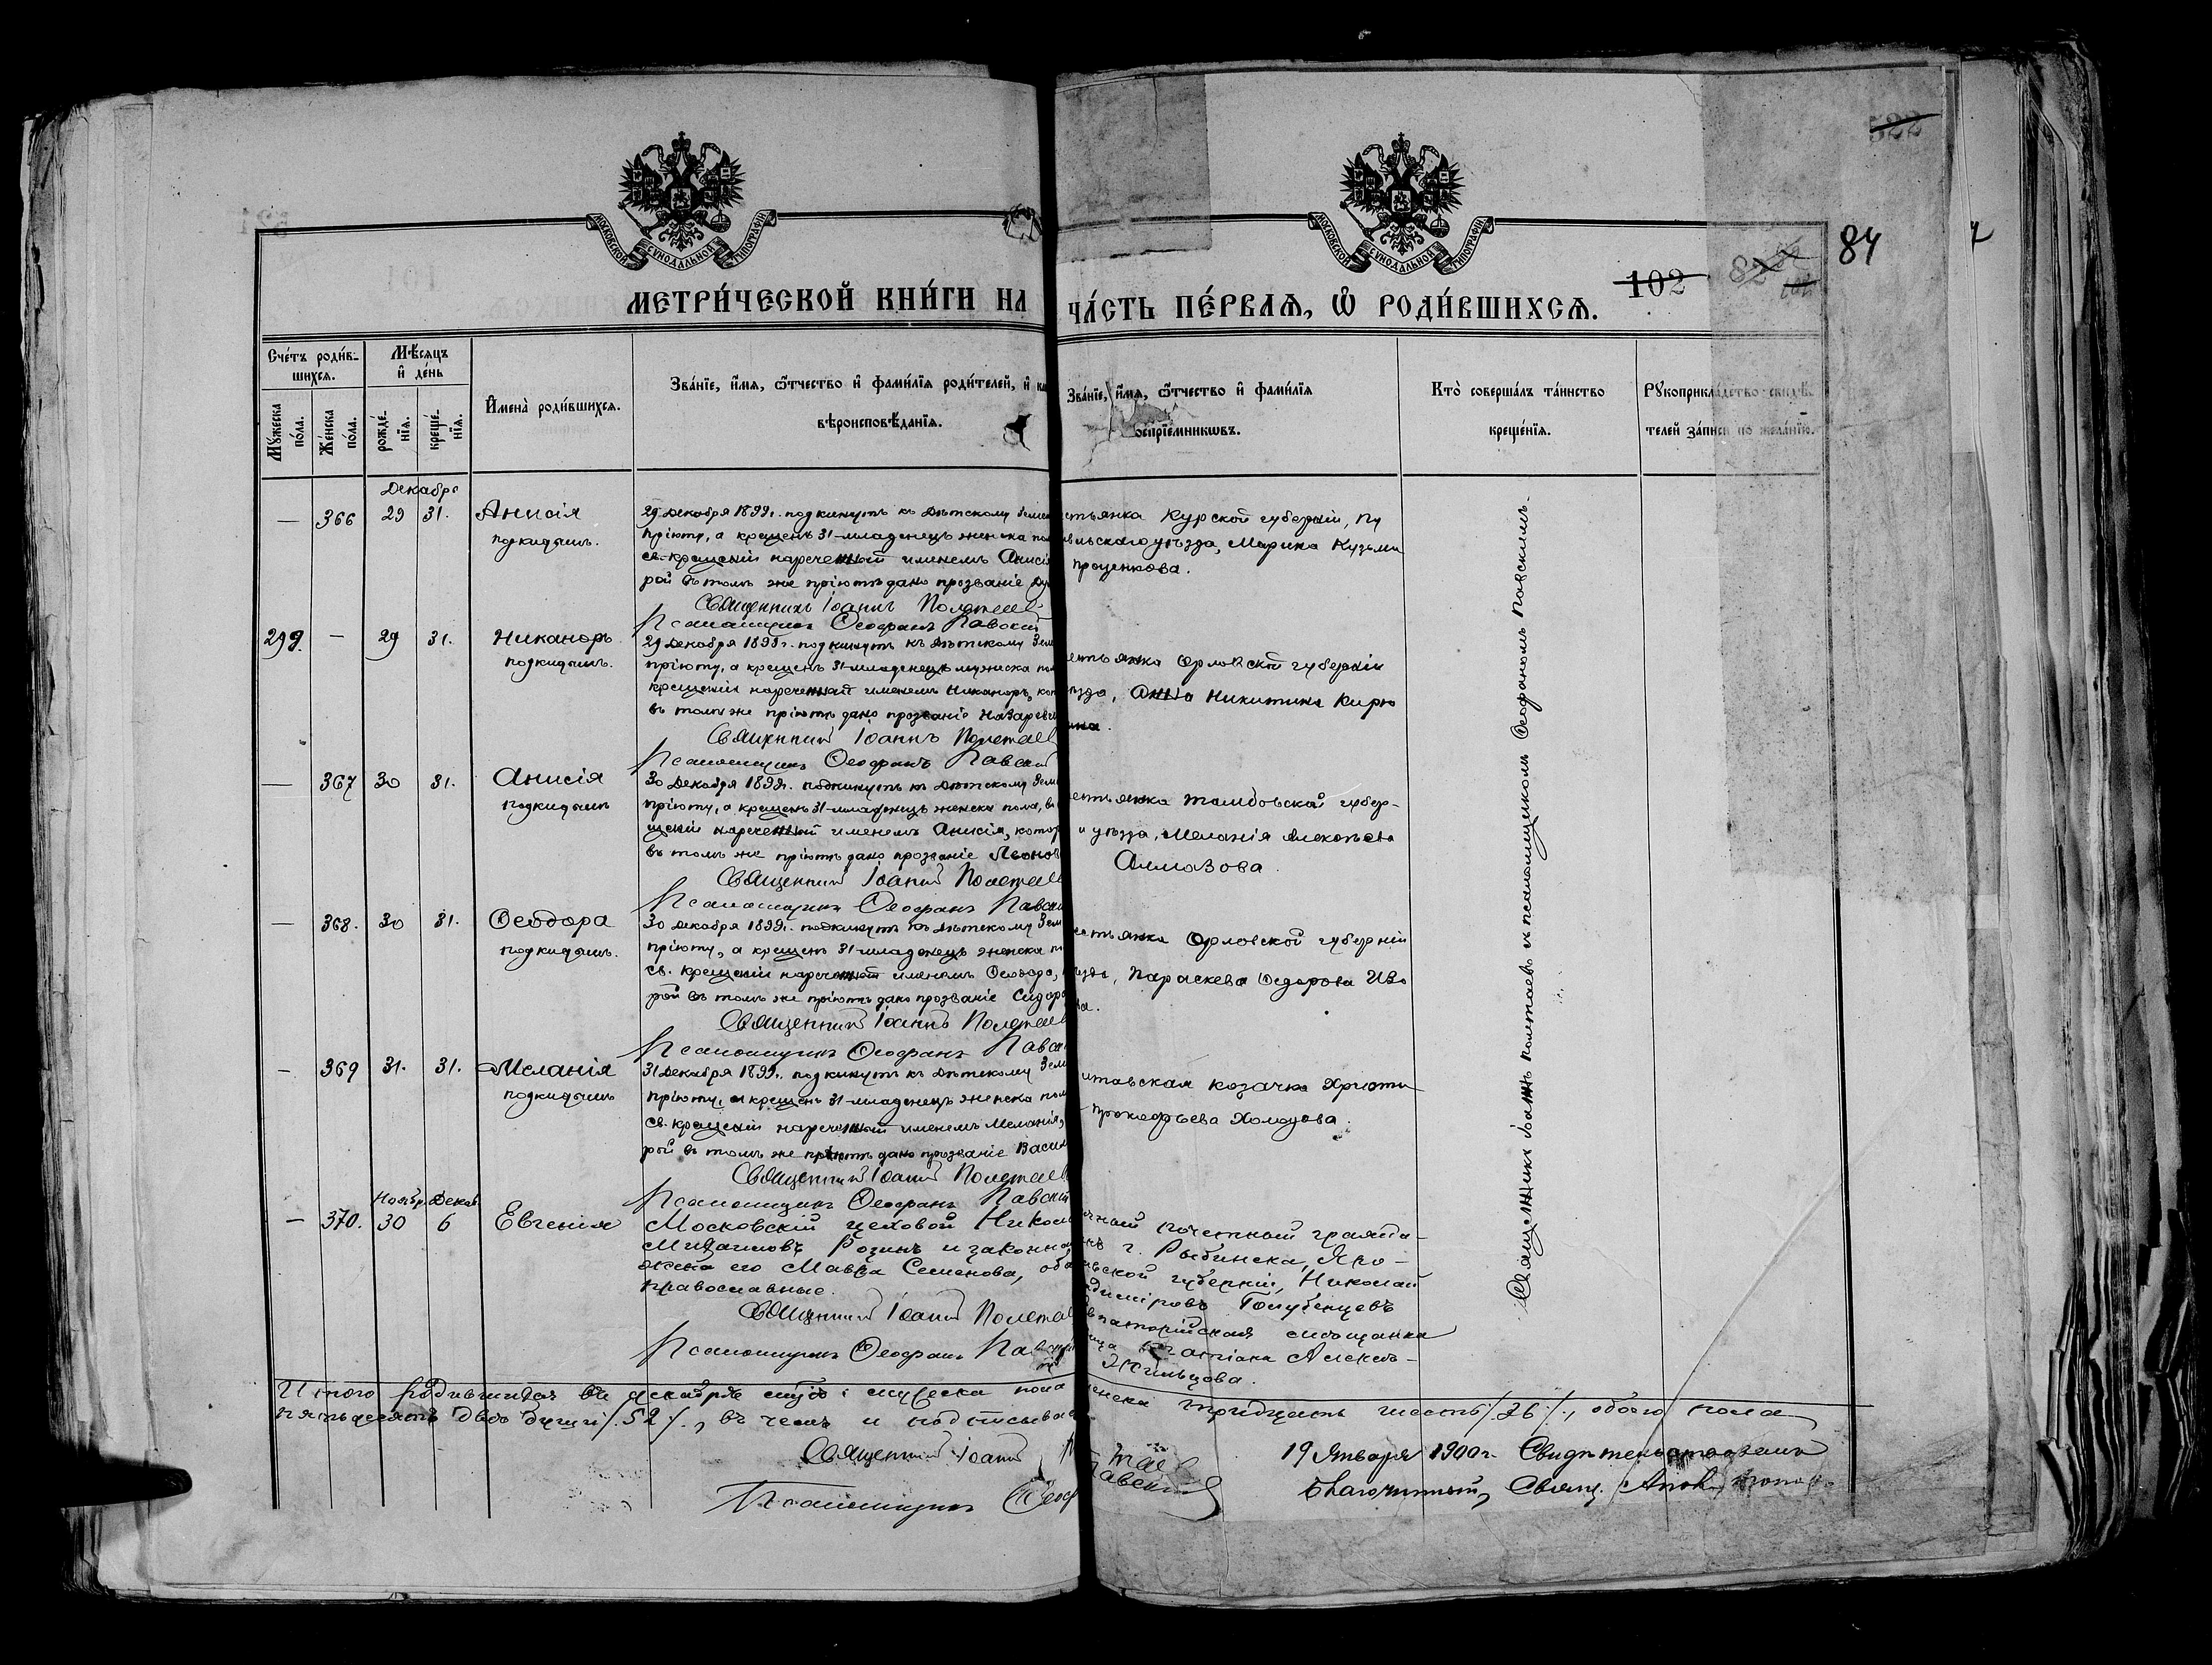 522
84
102
МОСКОВСКОЙ СѴНОДАЛЬНОЙ ТИПОГРАФІИ
МОСКОВСКОЙ СѴНОДАЛЬНОЙ ТИПОГРАФІИ
МЕТРИ́ЧЕСКОЙ КНИ́ГИ НА
ЧА́СТЬ ПЕ́РВАѦ, Ѡ҆ РОДИ́ВШИХСѦ.
Сче́тъ роди́в-
шихсѧ.
Мꙋ́жеска по́ла.
Же́нска по́ла.
Мѣ́сѧцъ
и҆ де́нь
рожде́нїѧ.
креще́нїѧ.
И҆мена̀ роди́вшихсѧ.
Зва́нїе, и҆́мѧ, ѻ҆́тчество и҆ фами́лїѧ роди́телей, и҆
вѣроисповѣ́данїѧ.
Зва́нїе, и҆́мѧ, ѻ҆́тчество и҆ фами́лїѧ
воспрїе́мникѡвъ.
Кто̀ соверша́лъ та́инство
креще́нїѧ.
Рꙋкоприкла́дство свидѣ́-
телей за́писи по жела́нїю.
Декабрь
— 366 29 31. Анисія
подкидышъ.
29 Декабря 1899г. подкинутъ къ Дѣтскому Земс
пріюту, а крещенъ 31-младенецъ женска по
св. крещеніи нареченный именемъ Анисія
рой въ томъ же пріютѣ дано прозваніе
Священникъ Іоаннъ Полетаев
Псаломщикъ Ѳеофанъ Павскій
стьянка Курской губерніи, Пу
вльскаго уѣзда, Марина Кузьми
Проценкова.
299. — 29 31. Никаноръ
подкидышъ.
29 Декабря 1899г. подкинутъ къ Дѣтскому Зем
пріюту, а крещенъ 31-младенецъ мужска по
крещеніи нареченный именемъ Никаноръ, ко
въ томъ же пріютѣ дано прозваніе Назарев
Священникъ Іоаннъ Полетаев
Псаломщикъ Ѳеофанъ Павскій
естьянка Орловской губерніи
ѣзда, Анна Никитина Кирю
ина.
— 367 30 31. Анисія
подкидышъ
30 Декабря 1899г. подкинутъ къ Дѣтскому Зем
пріюту, а крещенъ 31-младенецъ женска пола, въ
щеніи нареченный именемъ Анисія, котор
въ томъ же пріютѣ дано прозваніе Леонов
Священникъ Іоаннъ Полетаев
Псаломщикъ Ѳеофанъ Павскій
естьянка Тамбовской губер-
и уѣзда, Меланія Алексѣева
Алмазова.
— 368. 30 31. Ѳеодора
подкидышъ.
30 Декабря 1899г. подкинутъ къ Дѣтскому Зем
пріюту, а крещенъ 31-младенецъ женска п
св. крещеніи нареченный именемъ Ѳеодора,
рой въ томъ же пріютѣ дано прозваніе Сидор
Священникъ Іоаннъ Полетаев
Псаломщикъ Ѳеофанъ Павскій
стьянка Орловской губерніи
ѣзда, Параскева Ѳедорова Ива
ва.
— 369 31. 31. Меланія
подкидышъ
31 Декабря 1899г. подкинутъ къ Дѣтскому Зем
пріюту, а крещенъ 31-младенецъ женска пол
св. крещеніи нареченный именемъ Меланія,
рой въ томъ же пріютѣ дано прозваніе Васил
Священникъ Іоаннъ Полетаев
Псаломщикъ Ѳеофанъ Павскій
лтавская козачка Христи
Прокофьева Холодова.
Ноябр. Декаб.
— 370. 30 6 Евгенія
Московскій цеховой Никол
Михаиловъ Розинъ и законна
жена его Мавра Семенова, оба
православные.
Священникъ Іоаннъ Полетаев
Псаломщикъ Ѳеофанъ Павскій
чный почетный гражда-
нъ г. Рыбинска, Яро-
вской губерніи, Николай
димировъ Голубенцевъ
впаторійская мѣщанка
Татіана Алексѣ-
Жильцова.
Священникъ Іоаннъ Полетаевъ съ псаломщикомъ Ѳеофаномъ Павскимъ.
Итого родившихся въ декабрѣ мѣс: мужеска пола
женска тридцать шесть /36/, обоего пола
пятьдесятъ двѣ души /52/, въ чемъ и подписыва
Священникъ Іоаннъ
Псаломщикъ Ѳеоф
19 Января 1900г. Свидѣтельствовалъ
Благочинный, Священ.